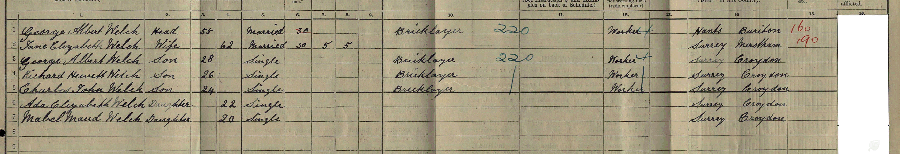 George Albert Welch Head 58 Married 30 Bricklayer 220 Worker Hants Buriton 160
Jane Elizabeth Welch Wife 62 Married 30 5 5 Surrey Merstham 190
George Albert Welch Son 28 Single Bricklayer 220 Worker Surrey Croydon
Richard Welch Son 26 Single Bricklayer Worker Surrey Croydon
Charles John Welch Son 24 Single Bricklayer Worker Surrey Croydon
Ada Elizabeth Welch Daughter 22 Single Surrey Croydon
Mabel Maud Welch Daughter 20 Single Surrey Croydon